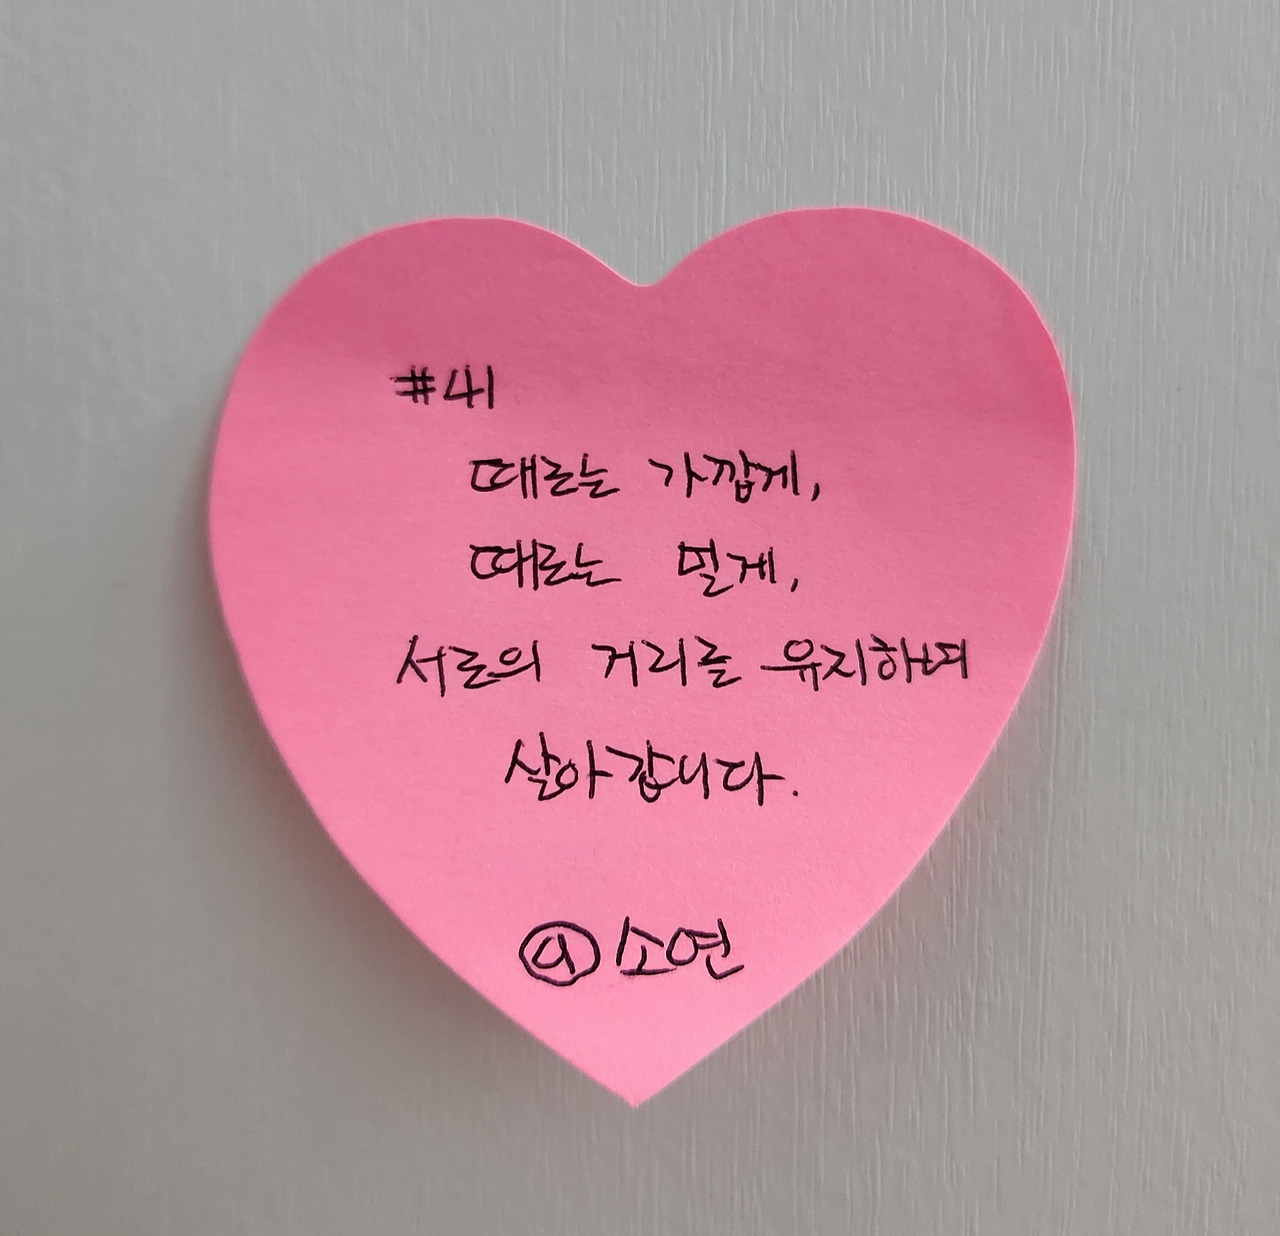 #41
때로는 가깝게,
때로는 멀게,
서로의 거리를 유지하며
살아갑니다.
@소연